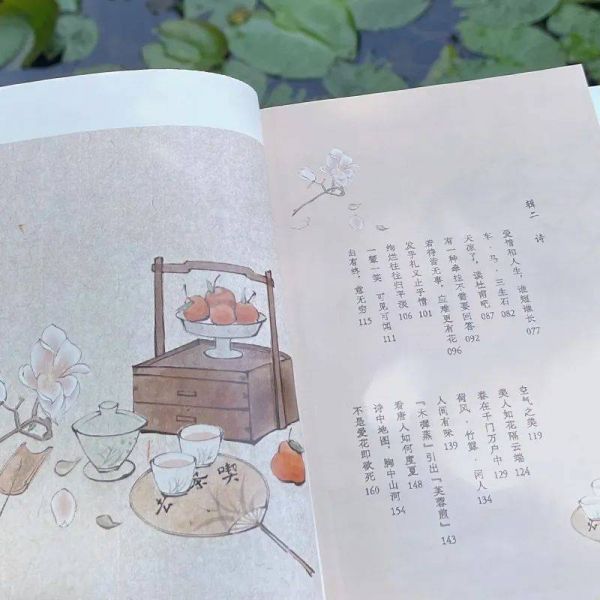 辑二 诗
爱憎和人生，谁短谁长 077
车·马·三生石 082
天凉了，读杜甫吧 087
有一种牵挂不需要回答 092
若待皆无事，应难更有花 096
发乎礼义止乎情 101
绚烂往往归平淡 106
一颦一笑 可见可 111
曲有终，意无穷 115
空气之美 119
美人如花隔云端 124
春在千门万户中 129
荷风·竹簟·闲人 134
人间有味 139
“木樨蒸”引出“芙蓉煎” 143
看唐人如何度夏 148
诗中地图，胸中山河 154
不是爱花即欲死 160
喫茶去